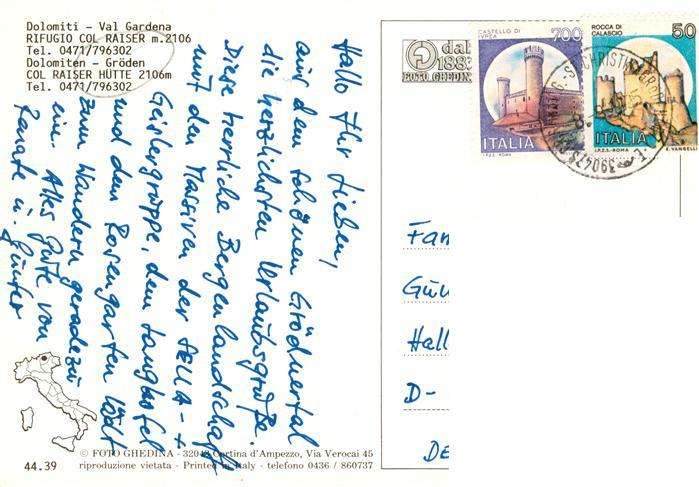 Dolomiti - Val Gardena
RIFUGIO COL RAISER m.2106
Tel. 0471/796302
Dolomiten - Gröden
COL RAISER HÜTTE 2106m
Tel. 0471/796302
Hallo Ihr Lieben,
aus dem schönen Grödnertal
die herzlichsten Urlaubsgrüße.
Diese herrliche Bergenlandschaft
mit den Massiven der SELLA- +
Geislergruppe, dem Langkofel
und dem Rosengarten lädt
zum Wandern geradezu
ein. Alles Gute von
Renate u. Günter
44.39
© FOTO GHEDINA - 32043 Cortina d'Ampezzo, Via Verocai 45
riproduzione vietata - Printed in Italy - telefono 0436 / 860737
dal
188
FOTO GHEDINA
CASTELLO DI
IVREA
700
ITALIA
I.P.Z.S. ROMA
ROCCA DI
CALASCIO
50
ITALIA
I.P.Z.S.-ROMA E. VANGELLI
39047 S. CHRISTINA
Fam
Gün
Hall
D-
DE